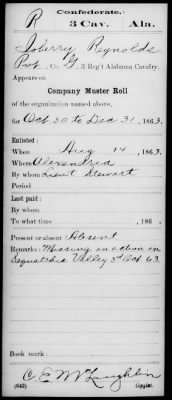 Confederate.
R 3 Cav. Ala.
Joberry Reynolds
Pvt., Co. G, 3 Reg't Alabama Cavalry.
Appears on
Company Muster Roll
of the organization named above,
for Oct 30 to Dec 31, 1863.
Enlisted:
When Aug 14, 1863.
Where Alexandria
By whom Lieut Stewart
Period
Last paid:
By whom
To what time , 186 .
Present or absent Absent
Remarks: Missing in action in
Sequatchie Valley 3d Oct 63.
Book mark:
C. E. McLaughlin
(642) Copyist.